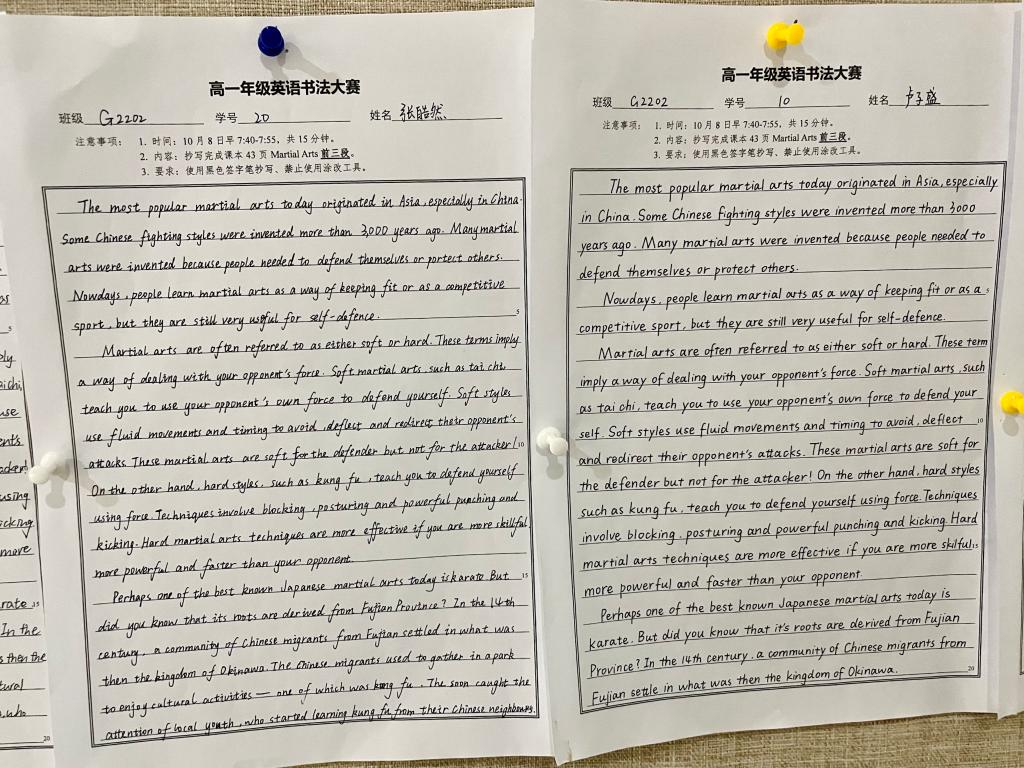 as
s
ply
aichi,
use
ent's
acker!
using
icking
more
rate 15
In the
s then the
tural
s,who
20
高一年级英语书法大赛
班级 G2202 学号 20 姓名 张皓然
注意事项: 1. 时间:10 月 8 日早 7:40-7:55,共 15 分钟。
2. 内容:抄写完成课本 43 页 Martial Arts 前三段。
3. 要求:使用黑色签字笔抄写、禁止使用涂改工具。
The most popular martial arts today originated in Asia, especially in China.
Some Chinese fighting styles were invented more than 3,000 years ago. Many martial
arts were invented because people needed to defend themselves or portect others.
Nowdays, people learn martial arts as a way of keeping fit or as a competitive
sport, but they are still very useful for self-defence. 5
Martial arts are often referred to as either soft or hard. These terms imply
a way of dealing with your opponent's force. Soft martial arts, such as tai chi,
teach you to use your opponent's own force to defend yourself. Soft styles
use fluid movements and timing to avoid, deflect and redirect their opponent's
attacks. These martial arts are soft for the defender but not for the attacker! 10
On the other hand, hard styles, such as kung fu, teach you to defend yourself
using force. Techniques involve blocking, posturing and powerful punching and
kicking. Hard martial arts techniques are more effective if you are more skillful,
more powerful and faster than your opponent.
Perhaps one of the best known Japanese martial arts today is karate. But 15
did you know that its roots are derived from Fujian Province? In the 14th
century, a community of Chinese migrants from Fujian settled in what was
then the kingdom of Okinawa. The Chinese migrants used to gather in a park
to enjoy cultural activities — one of which was kung fu. The soon caught the
attention of local youth, who started learning kung fu from their Chinese neighbours.
高一年级英语书法大赛
班级 G2202 学号 10 姓名 卢子盛
注意事项: 1. 时间:10 月 8 日早 7:40-7:55,共 15 分钟。
2. 内容:抄写完成课本 43 页 Martial Arts 前三段。
3. 要求:使用黑色签字笔抄写、禁止使用涂改工具。
The most popular martial arts today originated in Asia, especially
in China. Some Chinese fighting styles were invented more than 3000
years ago. Many martial arts were invented because people needed to
defend themselves or protect others.
Nowdays, people learn martial arts as a way of keeping fit or as a 5
competitive sport, but they are still very useful for self-defence.
Martial arts are often referred to as either soft or hard. These term
imply a way of dealing with your opponent's force. Soft martial arts, such
as tai chi, teach you to use your opponent's own force to defend your
self. Soft styles use fluid movements and timing to avoid, deflect 10
and redirect their opponent's attacks. These martial arts are soft for
the defender but not for the attacker! On the other hand, hard styles
such as kung fu, teach you to defend yourself using force. Techniques
involve blocking, posturing and powerful punching and kicking. Hard
martial arts techniques are more effective if you are more skilful, 15
more powerful and faster than your opponent.
Perhaps one of the best known Japanese martial arts today is
karate. But did you know that it's roots are derived from Fujian
Province? In the 14th century, a community of Chinese migrants from
Fujian settle in what was then the kingdom of Okinawa. 20